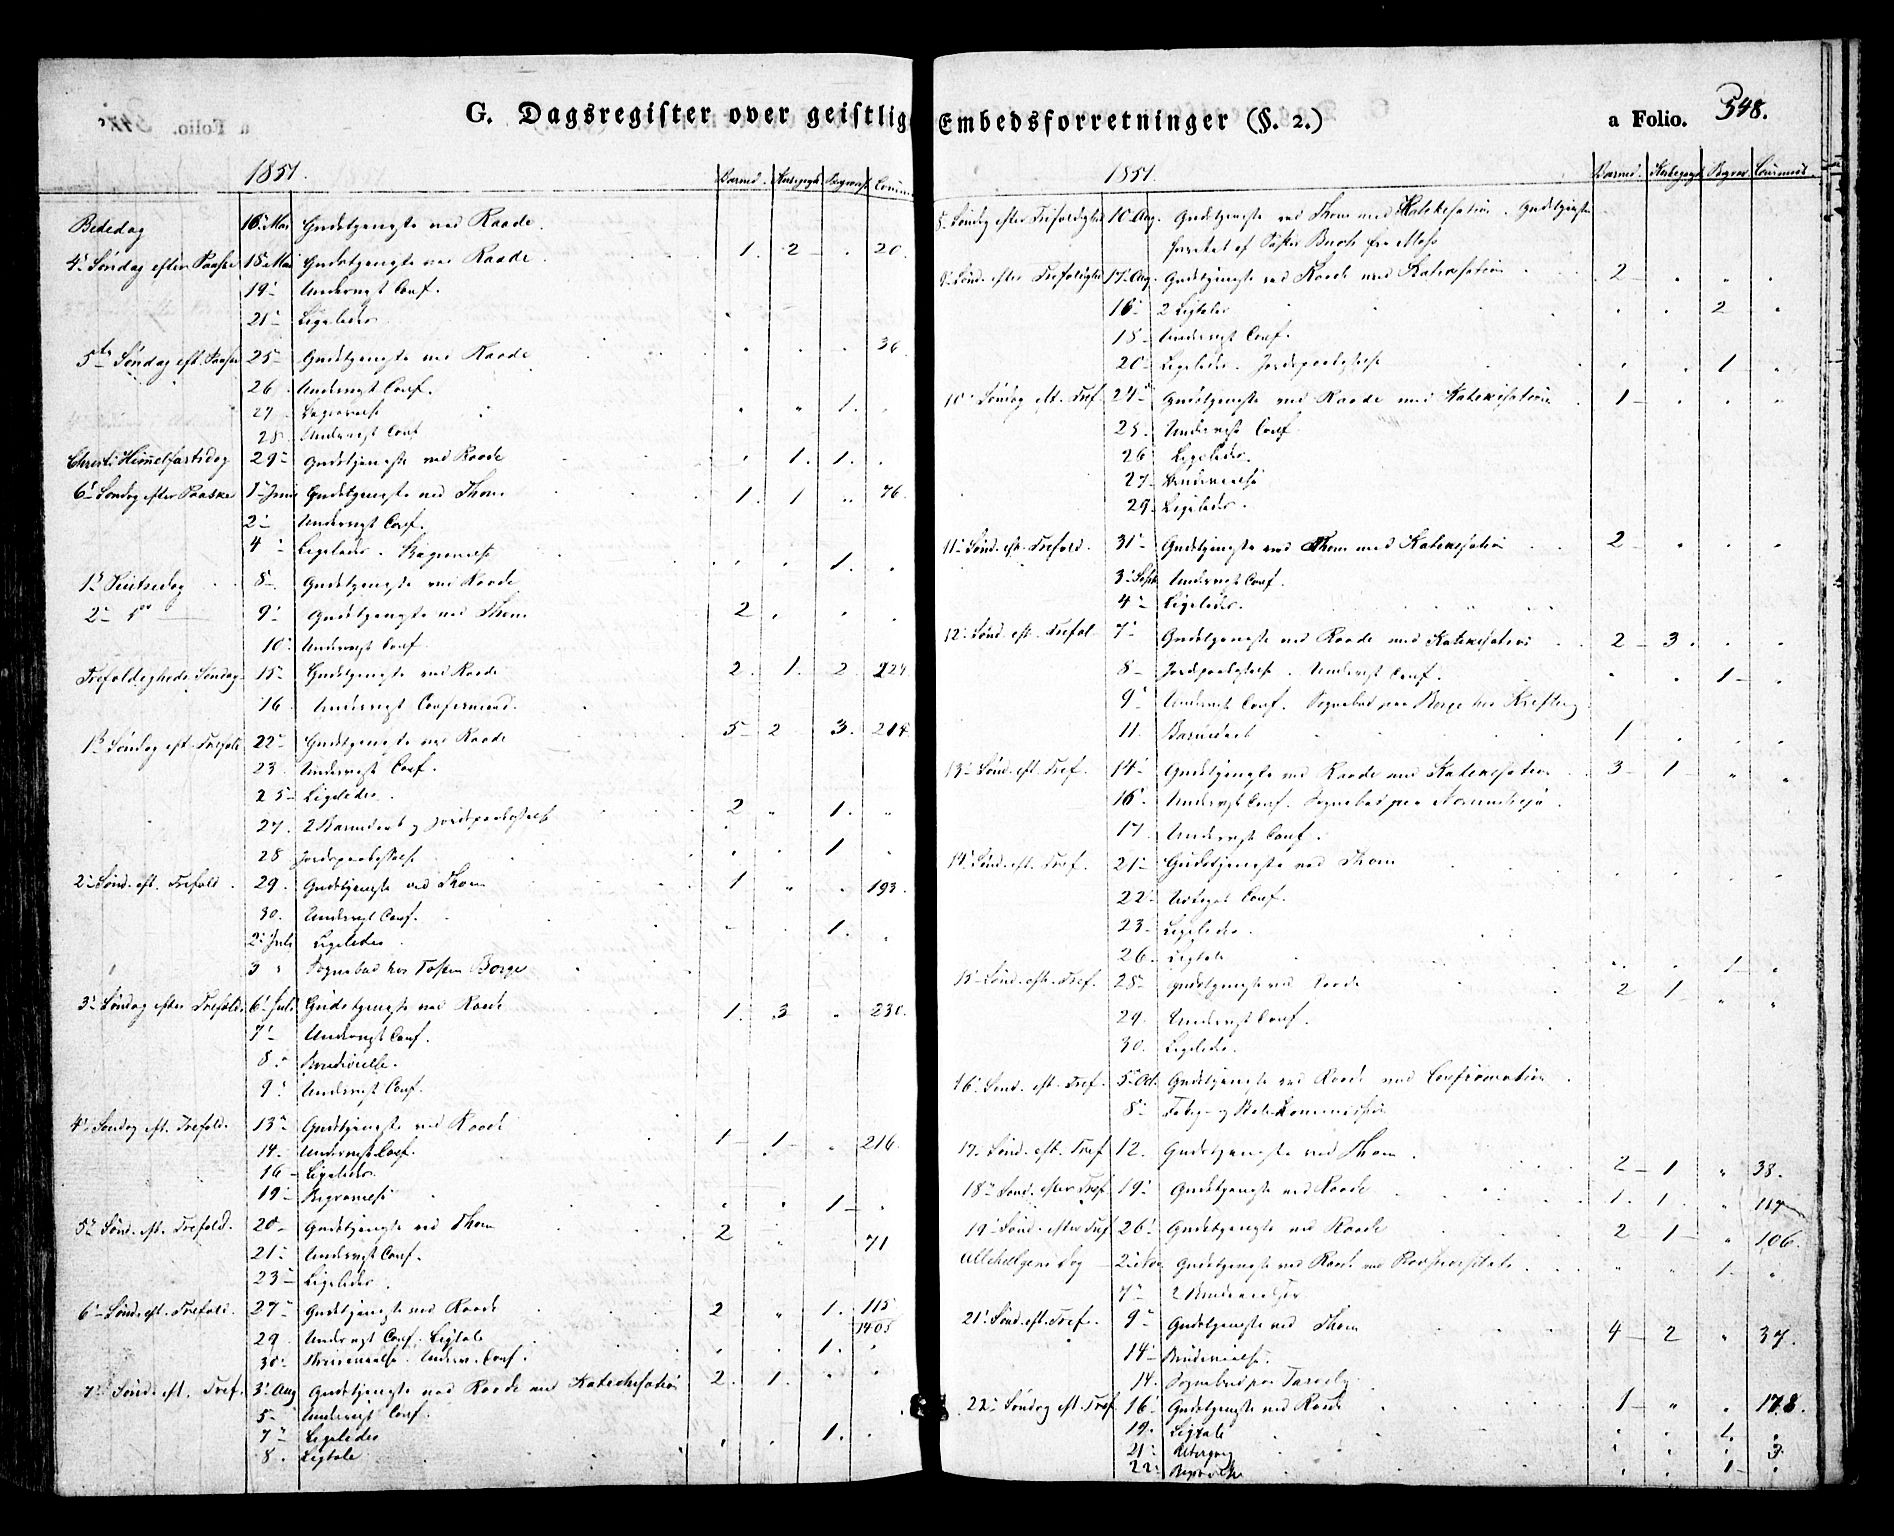 G. Dagsregister over geistlige Embedsforretninger (§. 2.)
a Folio. 348.
1851.
Barned. Begravels Commun
Bededag 16. Mai Gudstjeneste ved Raade.
4. Søndag efter Paaske 18. Mai Gudstjeneste ved Raade. 1. 2 20.
19. Underviist Conf.
21. Ligeledes
5te Søndag eft. Paaske 25. Gudstjeneste ved Raade 36
26. Underviist Conf.
27. Begravelse 1.
28. Underviist Conf
Christi Himmelfartsdag 29. Gudstjeneste ved Raade 1. 1.
6. Søndag efter Paaske 1. Juni Gudstjeneste ved Thom 1. 1 76.
2. Underviist Conf.
4. Ligeledes. Begravelse 1.
1. Pintsedag 8. Gudstjeneste ved Raade
2. do 9. Gudstjeneste ved Thom 2
10. Underviist Conf.
Trefoldigheds Søndag 15. Gudstjeneste ved Raade 2. 1. 2 224.
16. Underviist Confirmand.
1. Søndag eft. Trefold. 22. Gudstjeneste ved Raade 5 2 3. 214
23. Underviist Conf.
25. Ligeledes.
27. 2 Barnedaab og Jordpaakastelse 2 1.
28 Jordspaakastelse 1
2. Sønd. eft. Trefold. 29. Gudstjeneste ved Thom 1 193.
30. Underviist Conf.
2. Juli Ligeledes 1.
3 Sognebud hos Borge
3. Søndag efter Trefold. 6. Juli Gudstjeneste ved Raade 1. 3 230.
7. Underviist Conf.
8. Brudevielse.
9. Underviist Conf.
4. Søndag eft. Trefold. 13. Gudstjeneste ved Raade 1 1 216.
14. Underviist Conf.
16 Ligeledes.
19. Begravelse 1
5. Sønd. eft. Trefold. 20. Gudstjeneste ved Thom 2 71
21. Underviist Conf.
23. Ligeledes.
6. Sønd. eft. Trefold. 27. Gudstjeneste ved Raade 2 1. 115
1405
29. Underviist Conf. Ligtale 1.
30. Underv. Conf.
7. Sønd. eft. Tref. 3. Aug Gudstjeneste ved Raade med Katechisation 2. 1.
5. Underviist Conf.
7. Ligeledes 1.
8. Ligtale
1851.
Barned. Begrav. Commun.
8. Søndag efter Trefoldighed 10. Aug. Gudstjeneste ved Thom med Katekisation. Gudstjeneste
forrettet af Pastor Buch fra Moss
9. Sønd. efter Trefoldighed 17. Aug. Gudstjeneste ved Raade med Katekisation 2
16. 2 Ligtaler 2
18. Underviist Conf.
20. Ligeledes. Jordspaakastelse 1
10. Søndag eft. Tref. 24. Gudstjeneste ved Raade med Katekisation 1
25. Underviist Conf
26 Ligeledes.
27. Brudevielse
29. Ligeledes.
11. Sønd. eft. Trefold. 31. Gudstjeneste ved Thom med Katekisation 2
3. Sept. Underviist Conf.
4. Ligeledes.
12. Sønd. eft. Trefol. 7. Gudstjeneste ved Raade med Katekisation 2 3.
8. Jordpaakastelse. Underviist Conf. 1
9. Underviist Conf. Sognebud paa Borge
11. Barnedaab 1
13. Sønd. eft. Tref. 14. Gudstjeneste ved Raade med Katekisation 3 1
16. Underviist Conf. Sognebud paa
17. Underviist Conf.
14. Sønd. eft. Tref. 21. Gudstjeneste ved Thom
22. Underviist Conf.
23. Ligeledes.
26. Ligtale 1
15. Sønd. eft. Tref. 28. Gudstjeneste ved Raade 2 1
29. Underviist Conf.
30. Ligeledes.
16. Sønd. eft. Tref. 5. Oct. Gudstjeneste ved Raade med Confirmation
8.
17. Sønd. eft. Tref 12. Gudstjeneste ved Thom. 2 1 38.
18. Sønd. efter Tref 19. Gudstjeneste ved Raade 1. 1. 117
19. Sønd. efter Tref 26. Gudstjeneste ved Raade 2 1 106.
Allehelgens Dag 2. Nov Gudstjeneste ved Raade 1
7. 2 Brudevielser
21. Sønd. eft. Tref. 9. Gudstjeneste ved Thom 4 2 37.
14. Brudevielse.
14. Sognebud paa
22. Søndag eft. Tref 16. Gudstjeneste ved Raade 1 178.
19. Ligtale 1.
21. Altergang 3
22. Begravelse 1